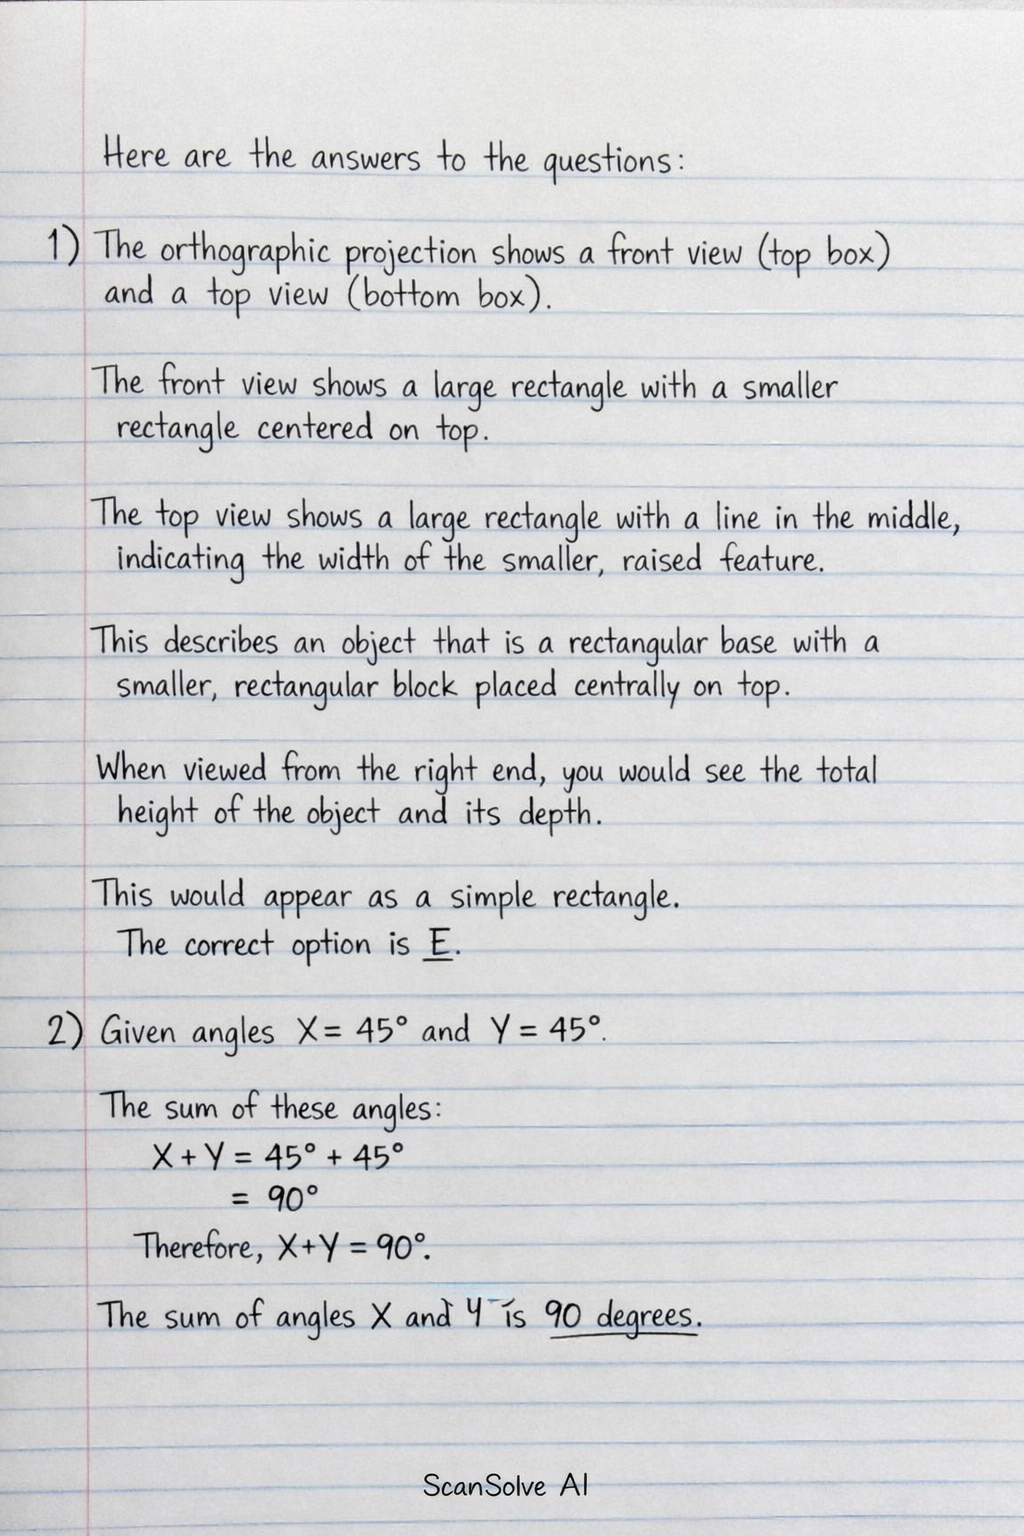 Here are the answers to the questions:
1) The orthographic projection shows a front view (top box)
and a top view (bottom box).
The front view shows a large rectangle with a smaller
rectangle centered on top.
The top view shows a large rectangle with a line in the middle,
indicating the width of the smaller, raised feature.
This describes an object that is a rectangular base with a
smaller, rectangular block placed centrally on top.
When viewed from the right end, you would see the total
height of the object and its depth.
This would appear as a simple rectangle.
The correct option is E.
2) Given angles X = 45° and Y = 45°.
The sum of these angles:
X + Y = 45° + 45°
= 90°
Therefore, X+Y = 90°.
The sum of angles X and Y is 90 degrees.
ScanSolve AI